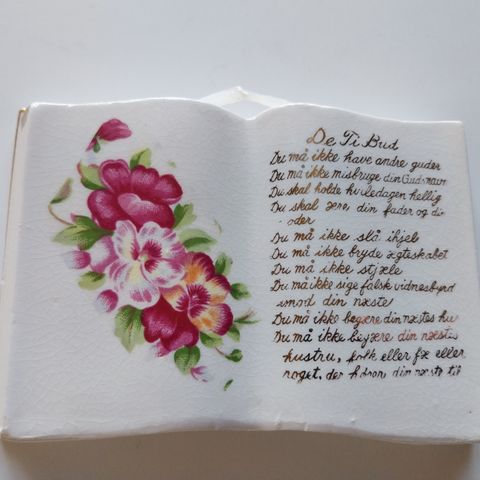 De Ti Bud
Du må ikke have andre guder
Du må ikke misbruge din Guds navn
Du skal holde hviledagen hellig
Du skal ære din fader og di
oder
Du må ikke slå ihjel
Du må ikke bryde ægteskabet
Du må ikke stjæle
Du må ikke sige falsk vidnesbyrd
imod din næste
Du må ikke begære din næstes hu
Du må ikke begære din næstes
hustru, folk eller fæ eller
noget, der hører din næste til